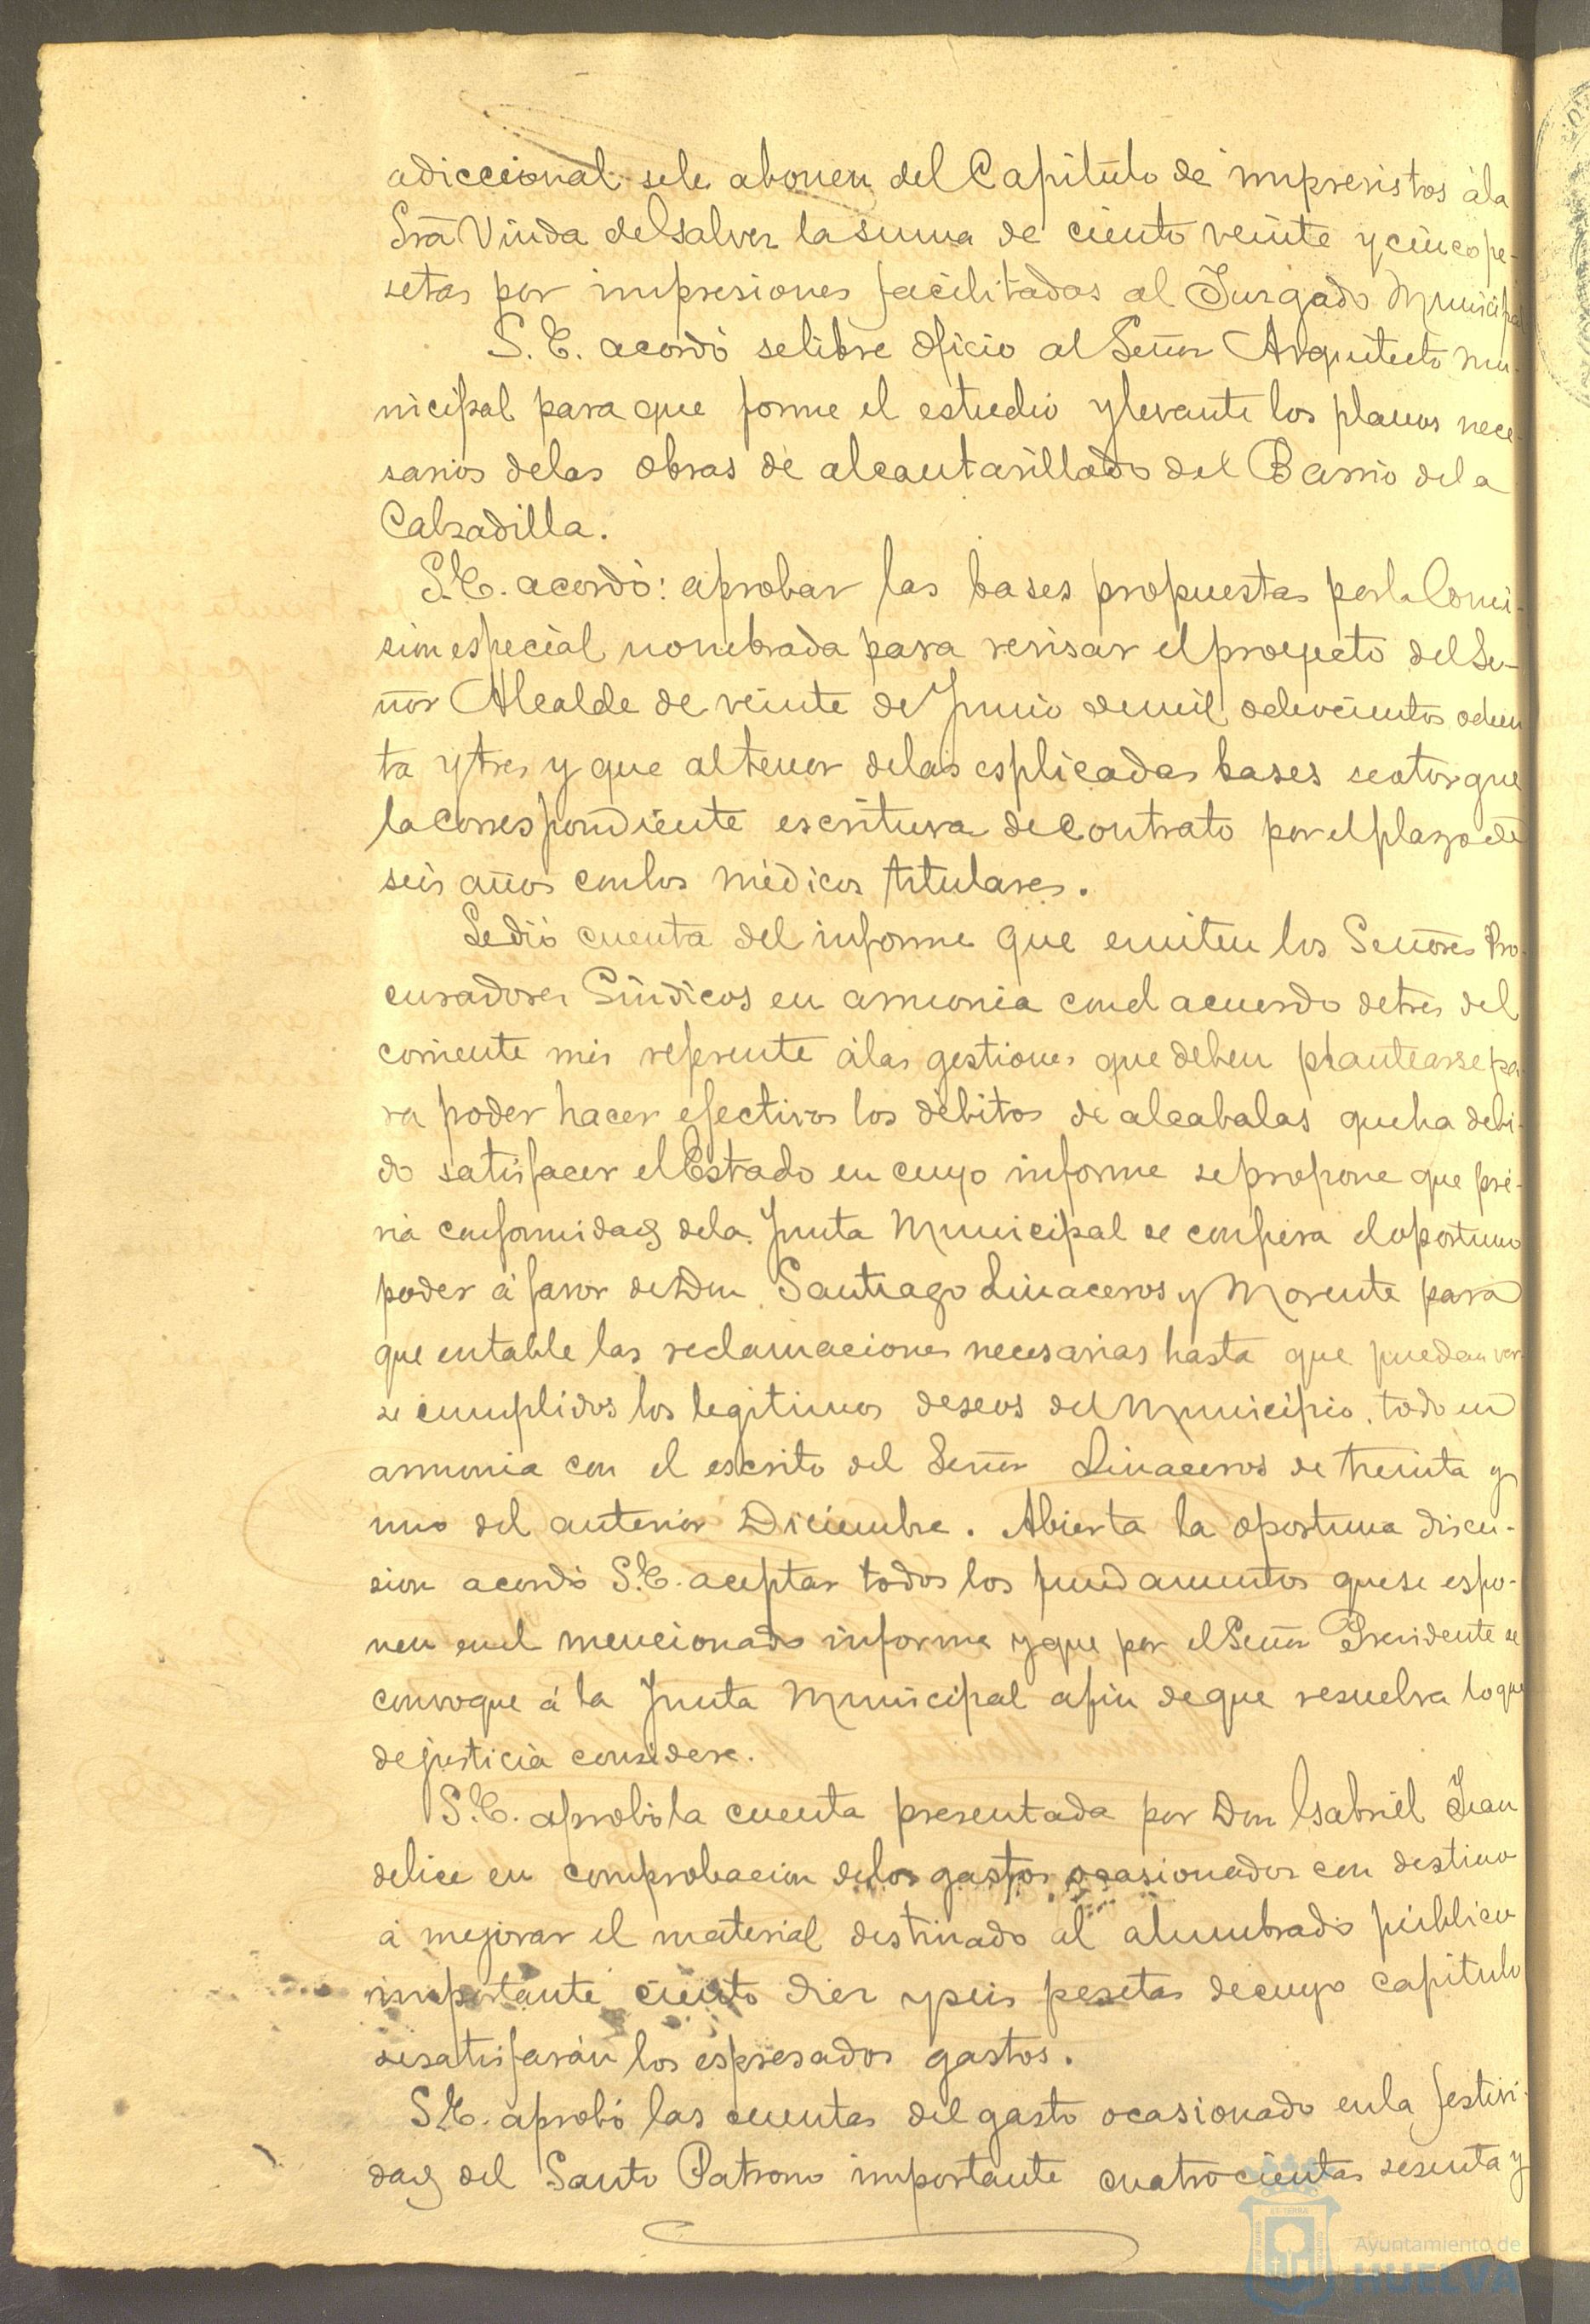 adiccional se le abonen del Capitulo de imprevistos á la
Sra Viuda de Salver la suma de ciento veinte y cinco pe-
setas por impresiones facilitadas al Juzgado Municipal
S. E. acordó se libre oficio al Señor Arquitecto mu-
nicipal para que forme el estudio y levante los planos nece-
sarios de las obras de alcantarillado del Barrio de la
Calzadilla.
S. E. acordó: aprobar las bases propuestas por la Comi-
sion especial nombrada para revisar el proyecto del Se-
ñor Alcalde de veinte de Junio de mil ochocientos ochen
ta y tres y que al tenor de las esplicadas bases se otorgue
la correspondiente escritura de contrato por el plazo de
seis años con los médicos titulares.
Se dió cuenta del informe que emiten los Señores Pro-
curadores Síndicos en armonia con el acuerdo de tres del
corriente mes referente á las gestiones que deben plantearse pa
ra poder hacer efectivos los débitos de alcabalas que ha debi-
do satisfacer el Estado en cuyo informe se propone que pré-
via conformidad de la Junta Municipal se confiera el oportuno
poder á favor de Don Santiago Linaceros y Morente para
que entable las reclamaciones necesarias hasta que puedan ver
se cumplidos los legitimos deseos del Municipio, todo en
armonia con el escrito del Señor Linaceros de treinta y
uno del anterior Diciembre. Abierta la oportuna discu-
sion acordó S. E. aceptar todos los fundamentos que se espo-
nen en el mencionado informe y que por el Señor Presidente se
convoque á la Junta Municipal afin de que resuelva lo que
de justicia considere.
S. E. aprobó la cuenta presentada por Don Gabriel Juan
delice en comprobacion de los gastos ocasionados con destino
á mejorar el material destinado al alumbrado público
importante ciento diez y seis pesetas de cuyo capitulo
se satisfarán los espresados gastos.
S. E. aprobó las cuentas del gasto ocasionado en la festivi-
dad del Santo Patrono importante cuatrocientas sesenta y
Ayuntamiento de
HUELVA